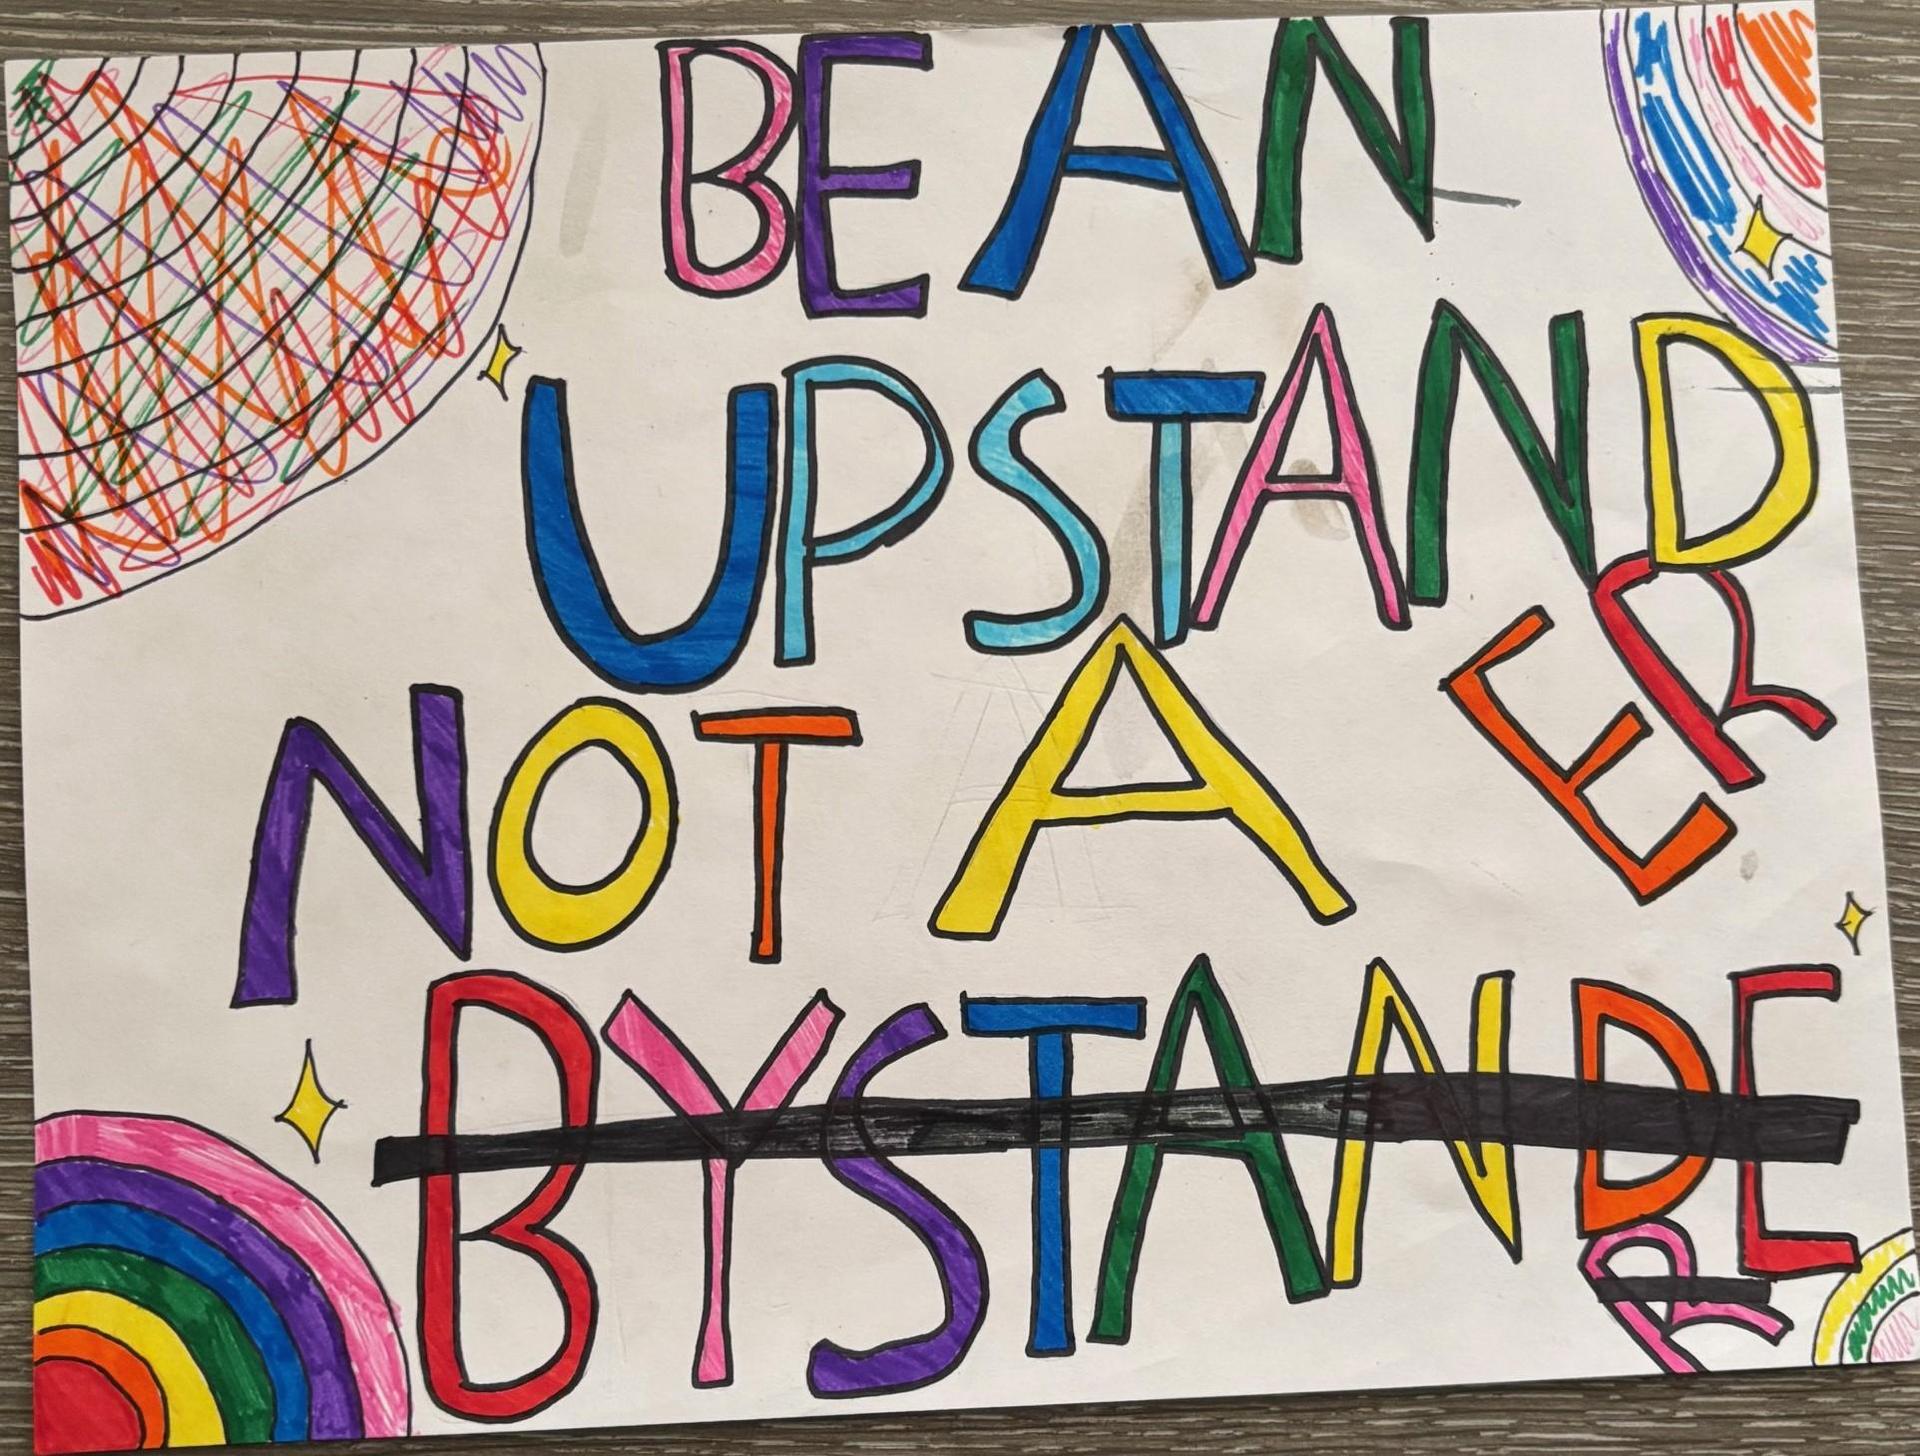 BE AN
UPSTANDER
NOT A
BYSTANDER